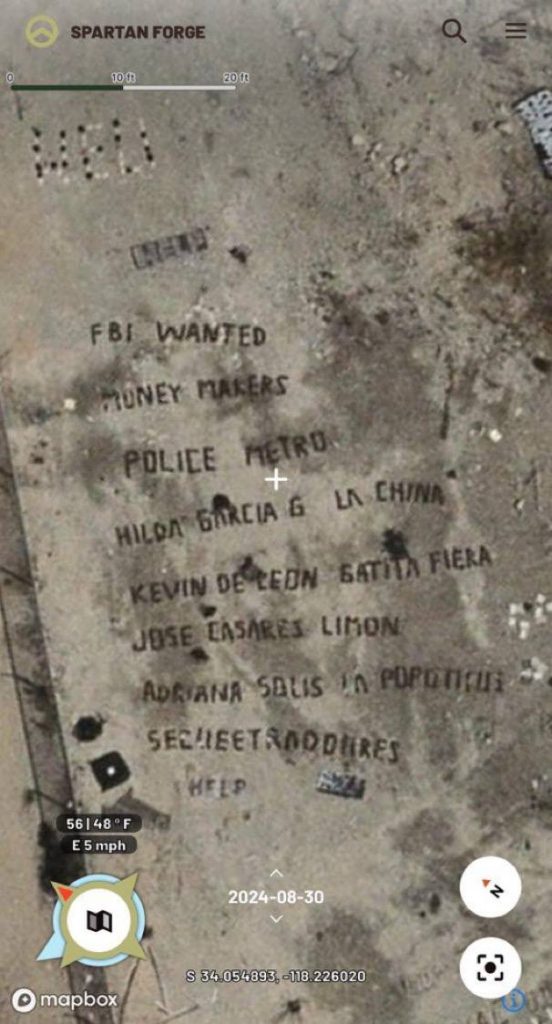 SPARTAN FORGE
0 10 ft 20 ft
HELP
FBI WANTED
MONEY MAKERS
POLICE METRO
HILDA GARCIA G LA CHINA
KEVIN DE LEON GATITA FIERA
JOSE CASARES LIMON
ADRIANA SOLIS LA
HELP
56 | 48 ° F
E 5 mph
2024-08-30
N
S 34.054893, -118.226020
mapbox